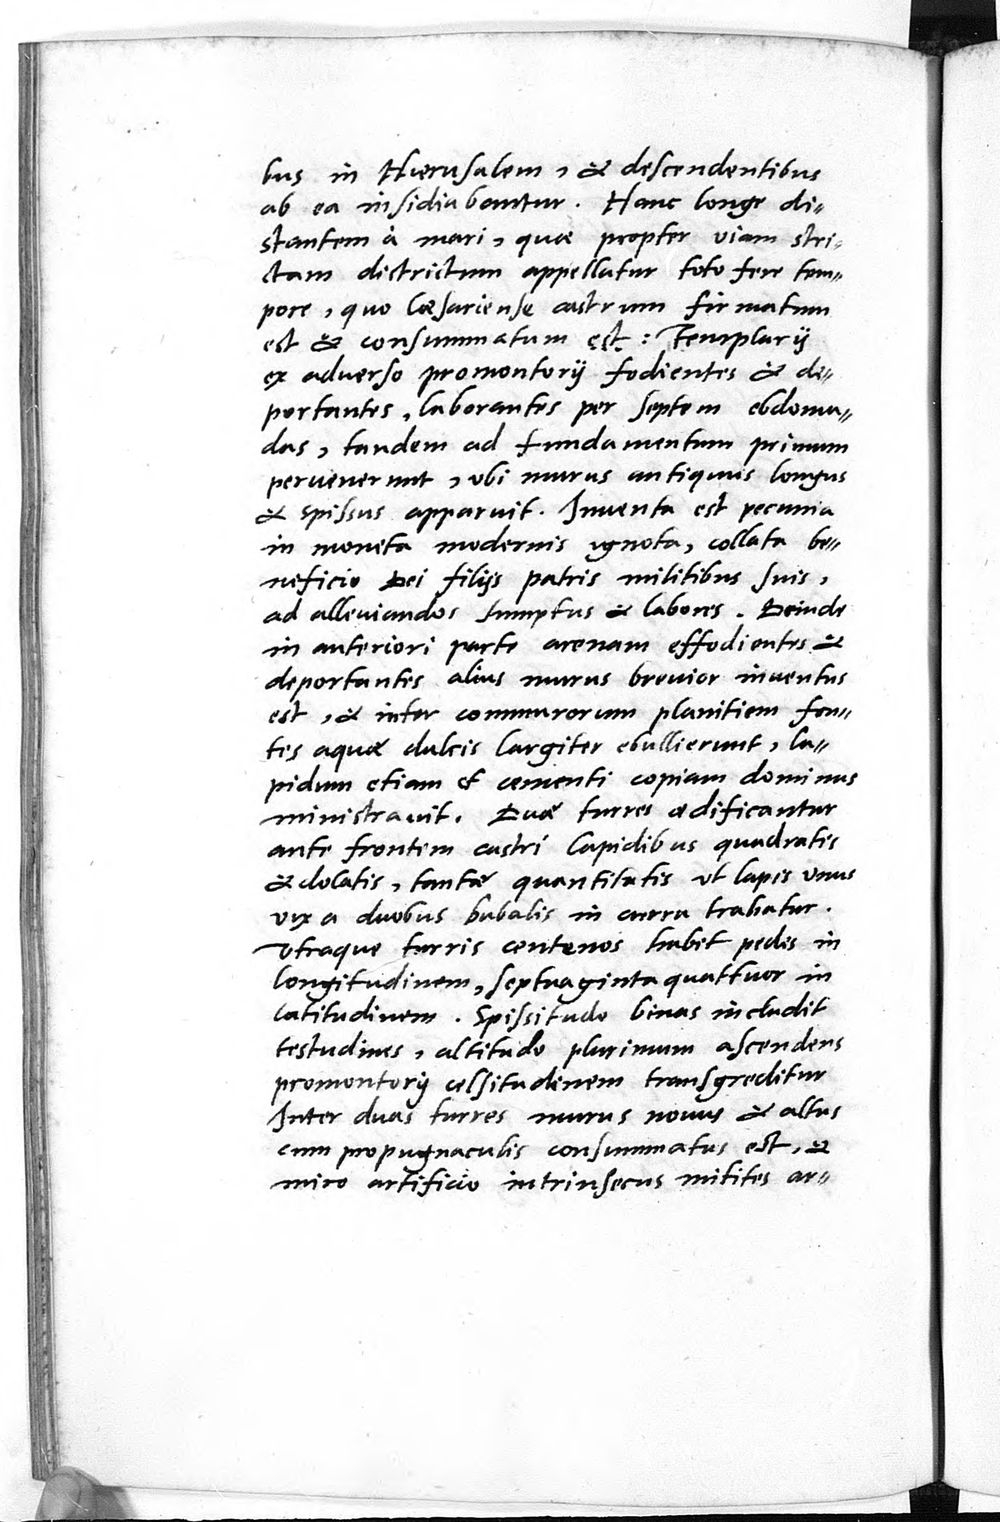 bus in Hierusalem, & descendentibus
ab ea insidiabantur. Hanc longe di„
stantem à mari, quæ propter viam stri„
ctam districtum appellatur toto fere tem„
pore, quo Cæsariense castrum firmatum
est & consummatum est: Templarij
ex adverso promontorij fodientes & de„
portantes, laborantes per septem ebdoma„
das, tandem ad fundamentum primum
peruenerunt, vbi murus antiquus longus
& spissus apparuit. Inventa est pecunia
in moneta modernis ignota, collata be„
neficio Dei filijs patris militibus suis,
ad alleuiandos sumptus & labores. Deinde
in anteriori parte arenam effodientes &
deportantes alius murus brevior inuentus
est, & inter conmurorum planitiem fon„
tes aquæ dulcis largiter ebullierunt, la„
pidum etiam et cementi copiam dominus
ministravit. Duæ turres ædificantur
ante frontem castri lapidibus quadratis
& dolatis, tantæ quantitatis vt lapis vnus
vix a duobus bubalis in curru trahatur.
Vtraque turris centenos habet pedes in
longitudinem, septuaginta quattuor in
latitudinem. Spissitudo binas includit
testudines, altitudo plurimum ascendens
promontorij celsitudinem transgreditur
Inter duas turres murus nouus & altus
cum propugnaculis consummatus est, &
miro artificio intrinsecus milites ar„